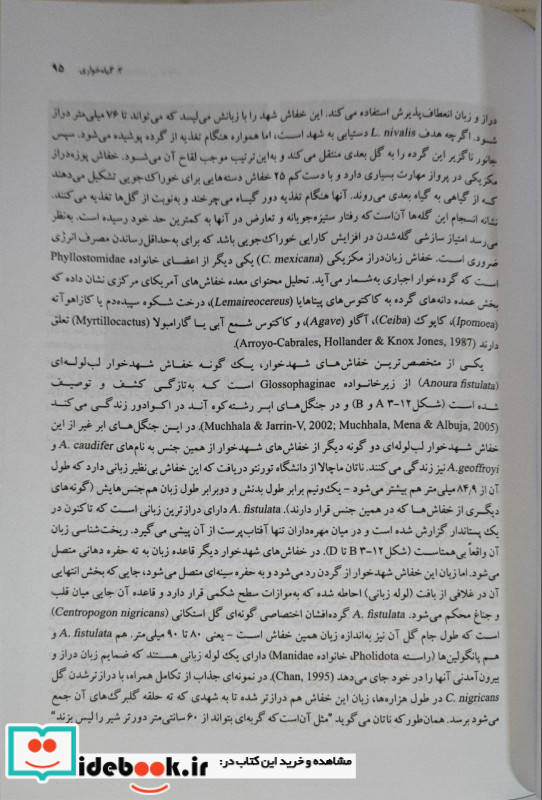 ۳. گیاه‌خواری: ۹۵
دراز و زبان انعطاف‌پذیرش استفاده می‌کند. این خفاش شهد را با زبانش می‌لیسد که می‌تواند تا ۷۶ میلی‌متر دراز
شود. اگرچه هدف L. nivalis دستیابی به شهد است، اما همواره هنگام تغذیه از گرده پوشیده می‌شود. سپس
جانور ناگزیر این گرده را به گل بعدی منتقل می‌کند و به‌این‌ترتیب موجب لقاح آن می‌شود. خفاش پوزه‌دراز
مکزیکی در پرواز مهارت بسیاری دارد و با دست‌کم ۲۵ خفاش دسته‌هایی برای خوراک‌جویی تشکیل می‌دهند
که از گیاهی به گیاه بعدی می‌روند. آنها هنگام تغذیه دور گیاه می‌چرخند و به‌نوبت از گل‌ها تغذیه می‌کنند.
نشانه انسجام این گله‌ها آن‌است که رفتار ستیزه‌جویانه و تعارض در آنها به کمترین حد خود رسیده است. به‌نظر
می‌رسد امتیاز سازشی گله‌شدن در افزایش کارایی خوراک‌جویی باشد که برای به‌حداقل‌رساندن مصرف انرژی
ضروری است. خفاش زبان‌دراز مکزیکی (C. mexicana) یکی دیگر از اعضای خانواده Phyllostomidae
است که گرده‌خوار اجباری به‌شمار می‌آید. تحلیل محتوای معده خفاش‌های آمریکای مرکزی نشان داده که
بخش عمده دانه‌های گرده به کاکتوس‌های پیتاهایا (Lemaireocereus)، درخت شکوه سپیده‌دم یا کازاهوآته
(Ipomoea)، کاپوک (Ceiba)، آگاو (Agave)، و کاکتوس شمع آبی یا گارامبولا (Myrtillocactus) تعلق
دارند (Arroyo-Cabrales, Hollander & Knox Jones, 1987).
یکی از متخصص‌ترین خفاش‌های شهدخوار، یک گونه خفاش شهدخوار لب‌لوله‌ای
(Anoura fistulata) از زیرخانواده Glossophaginae است که به‌تازگی کشف و توصیف
شده است (شکل۱۲-۳ A و B) و در جنگل‌های ابر رشته‌کوه آند در اکوادور زندگی می‌کند
(Muchhala & Jarrin-V, 2002; Muchhala, Mena & Albuja, 2005). در این جنگل‌های ابر غیر از این
خفاش شهدخوار لب‌لوله‌ای دو گونه دیگر از خفاش‌های شهدخوار از همین جنس به نام‌های A. caudifer و
A.geoffroyi نیز زندگی می‌کنند. ناتان ماچالا از دانشگاه تورنتو دریافت که این خفاش بی‌نظیر زبانی دارد که طول
آن از ۸۴٫۹ میلی‌متر هم بیشتر می‌شود - یک‌ونیم برابر طول بدنش و دوبرابر طول زبان هم‌جنس‌هایش (گونه‌های
دیگری از خفاش‌ها که در همین جنس قرار دارند). A. fistulata دارای درازترین زبانی است که تاکنون در
یک پستاندار گزارش شده است و در میان مهره‌داران تنها آفتاب‌پرست از آن پیشی می‌گیرد. ریخت‌شناسی زبان
آن واقعاً بی‌همتاست (شکل۱۲-۳ B تا D). در خفاش‌های شهدخوار دیگر قاعده زبان به ته حفره دهانی متصل
می‌شود. اما زبان این خفاش شهدخوار از گردن رد می‌شود و به حفره سینه‌ای متصل می‌شود، جایی‌که بخش انتهایی
آن در غلافی از بافت (لوله زبانی) احاطه شده که به‌موازات سطح شکمی قرار دارد و قاعده آن جایی میان قلب
و جناغ محکم می‌شود. A. fistulata گرده‌افشان اختصاصی گونه‌ای گل استکانی (Centropogon nigricans)
است که طول جام گل آن نیز به‌اندازه زبان همین خفاش است - یعنی ۸۰ تا ۹۰ میلی‌متر. هم A. fistulata و
هم پانگولین‌ها (راسته Pholidota، خانواده Manidae) دارای یک لوله زبانی هستند که ضمایم زبان دراز و
بیرون‌آمدنی آنها را در خود جای می‌دهد (Chan, 1995). در نمونه‌ای جذاب از تکامل همراه، با درازترشدن گل
C. nigricans در طول هزاره‌ها، زبان این خفاش هم درازتر شده تا به شهدی که ته حلقه گلبرگ‌های آن جمع
می‌شود برسد. همان‌طور‌که ناتان می‌گوید "مثل آن‌است که گربه‌ای بتواند از ۶۰ سانتی‌متر دورتر شیر را لیس بزند"
مشاهده و خرید این کتاب در:
iidebook.ir